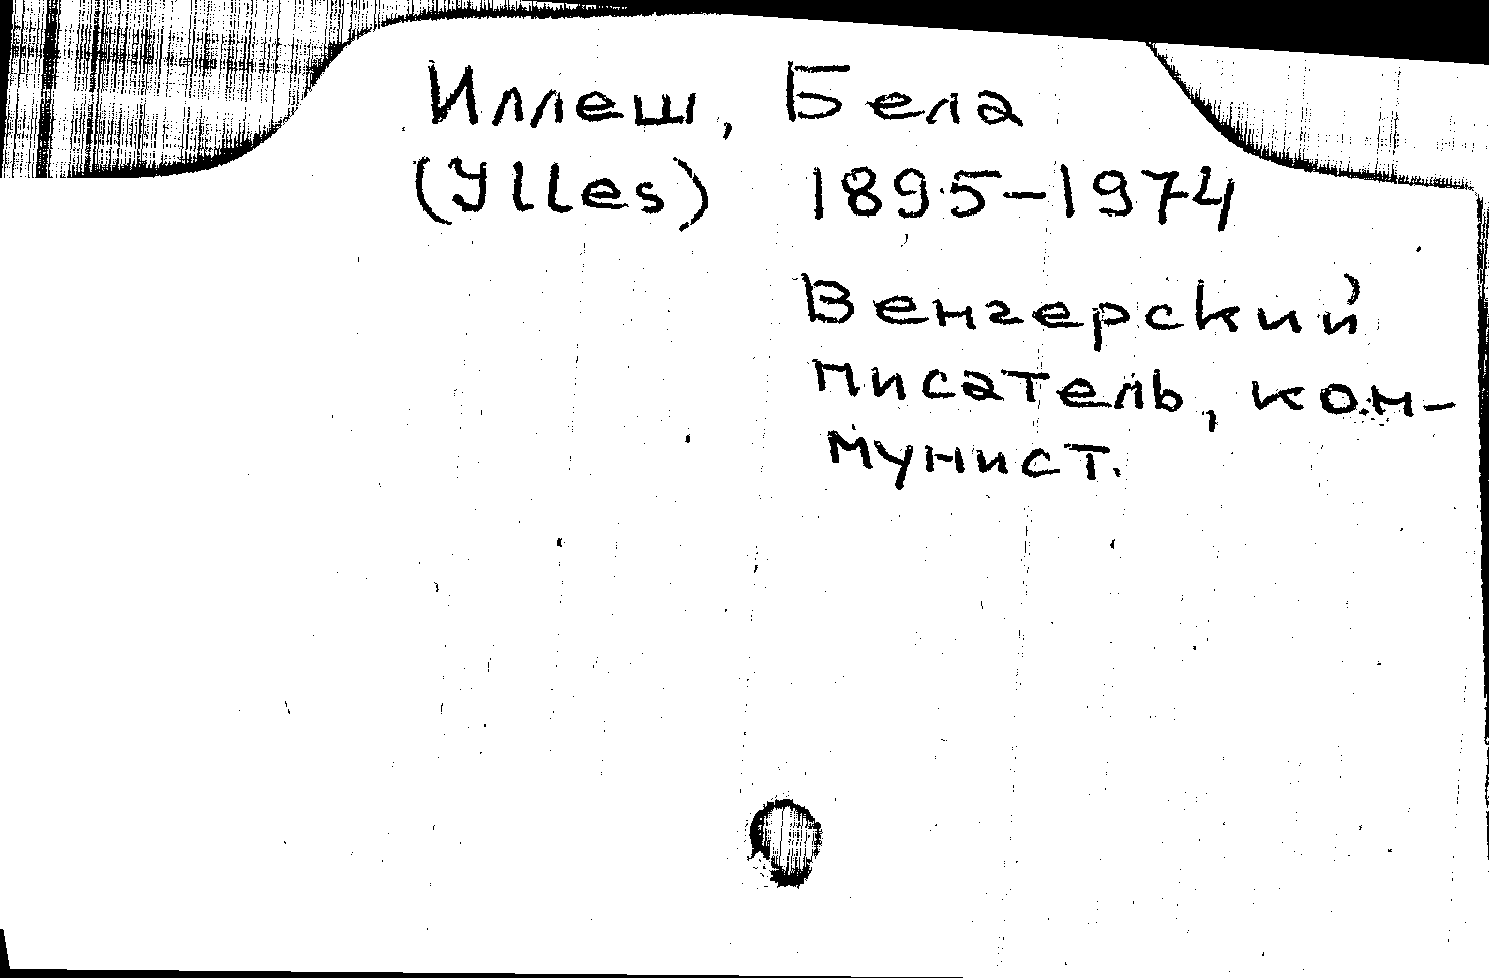 Иллеш, Бела
(Ylles) 1895-1974
Венгерский
писатель, ком-
мунист.